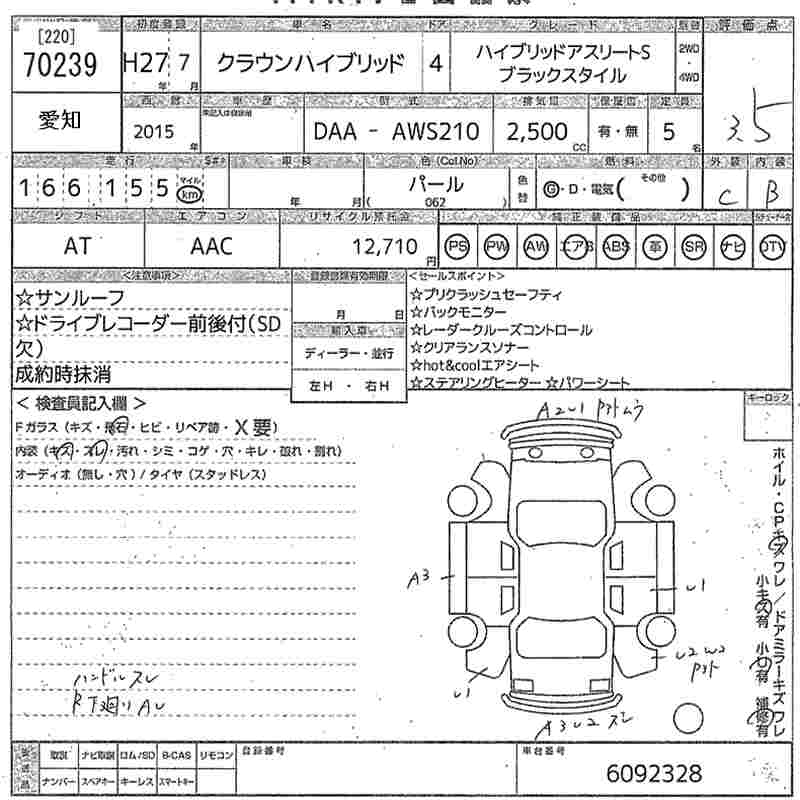 [220]
70239
初度登録
車名
ドア
グレード
評価点
H27 7
年 月
クラウンハイブリッド
4
ハイブリッドアスリートS
ブラックスタイル
2WD
・
4WD
3.5
愛知
車歴
型式
排気量
定員
2015
年
DAA - AWS210
2,500
CC
有・無
5
名
走行
車検
色(Col.No)
燃料
外装
内装
166,155
マイル
km
年 月
パール
( 062 )
色替
G・D・電気( その他 )
C
B
シフト
エアコン
リサイクル預託金
純正装備品
AT
AAC
12,710
円
PS PW AW エアB ABS 革 SR ナビ DTV
<注意事項>
登録書類有効期限
<セールスポイント>
☆サンルーフ
☆ドライブレコーダー前後付(SD
欠)
成約時抹消
月 日
輸入車
ディーラー・並行
左H ・ 右H
☆プリクラッシュセーフティ
☆バックモニター
☆レーダークルーズコントロール
☆クリアランスソナー
☆hot&coolエアシート
☆ステアリングヒーター ☆パワーシート
キーロック
< 検査員記入欄 >
Fガラス (キズ・飛石・ヒビ・リペア跡・X要)
内装 (キズ・スレ・汚れ・シミ・コゲ・穴・キレ・破れ・割れ)
オーディオ (無し・穴) / タイヤ (スタッドレス)
A2U1
A3
U1
U2 W2
U1
A3U2 スレ
ハンドルスレ
ホイル・CPキズワレ/ドアミラーキズワレ
小キズ有 小凹有 補修有
取説
ナビ取説
ロム/SD
B-CAS
リモコン
登録番号
車台番号
ナンバー
スペアキー
キーレス
スマートキー
6092328